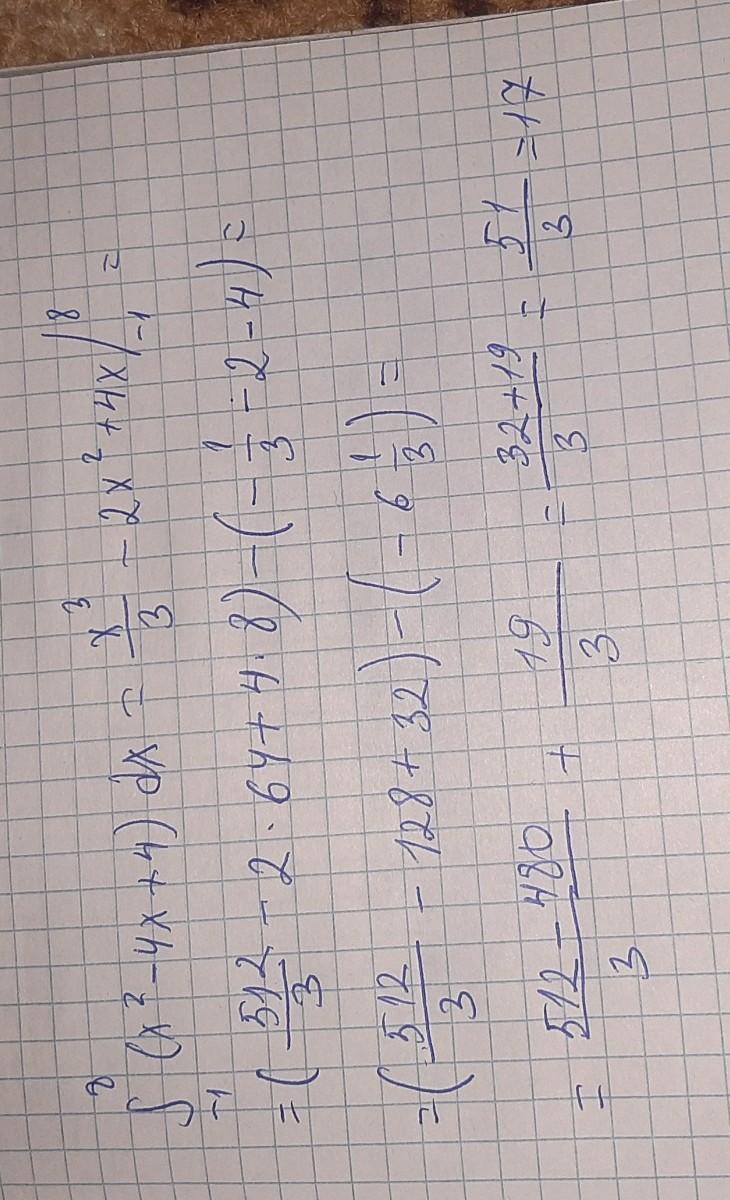 ∫₋₁⁸ (x² - 4x + 4) dx = x³/3 - 2x² + 4x |₋₁⁸ =
= (512/3 - 2 · 64 + 4 · 8) - (-1/3 - 2 - 4) =
= (512/3 - 128 + 32) - (-6 1/3) =
= (512 - 480)/3 + 19/3 = (32 + 19)/3 = 51/3 = 17